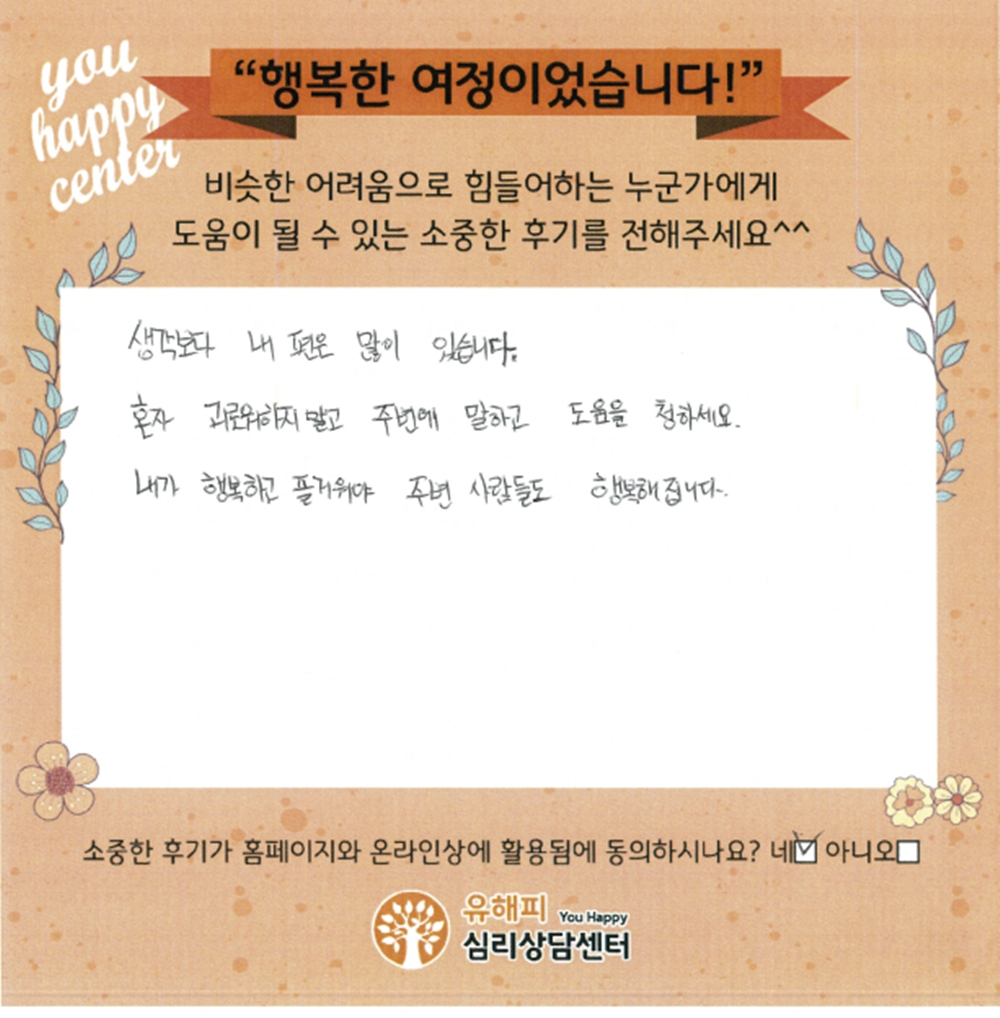 you
happy
center
“행복한 여정이었습니다!”
비슷한 어려움으로 힘들어하는 누군가에게
도움이 될 수 있는 소중한 후기를 전해주세요^^
생각보다 내 편은 많이 있습니다.
혼자 괴로워하지 말고 주변에 말하고 도움을 청하세요.
내가 행복하고 즐거워야 주변 사람들도 행복해집니다.
소중한 후기가 홈페이지와 온라인상에 활용됨에 동의하시나요? 네☑ 아니오☐
유해피 You Happy
심리상담센터